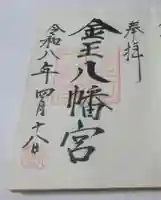 奉拝
金王八幡宮
令和八年四月十八日